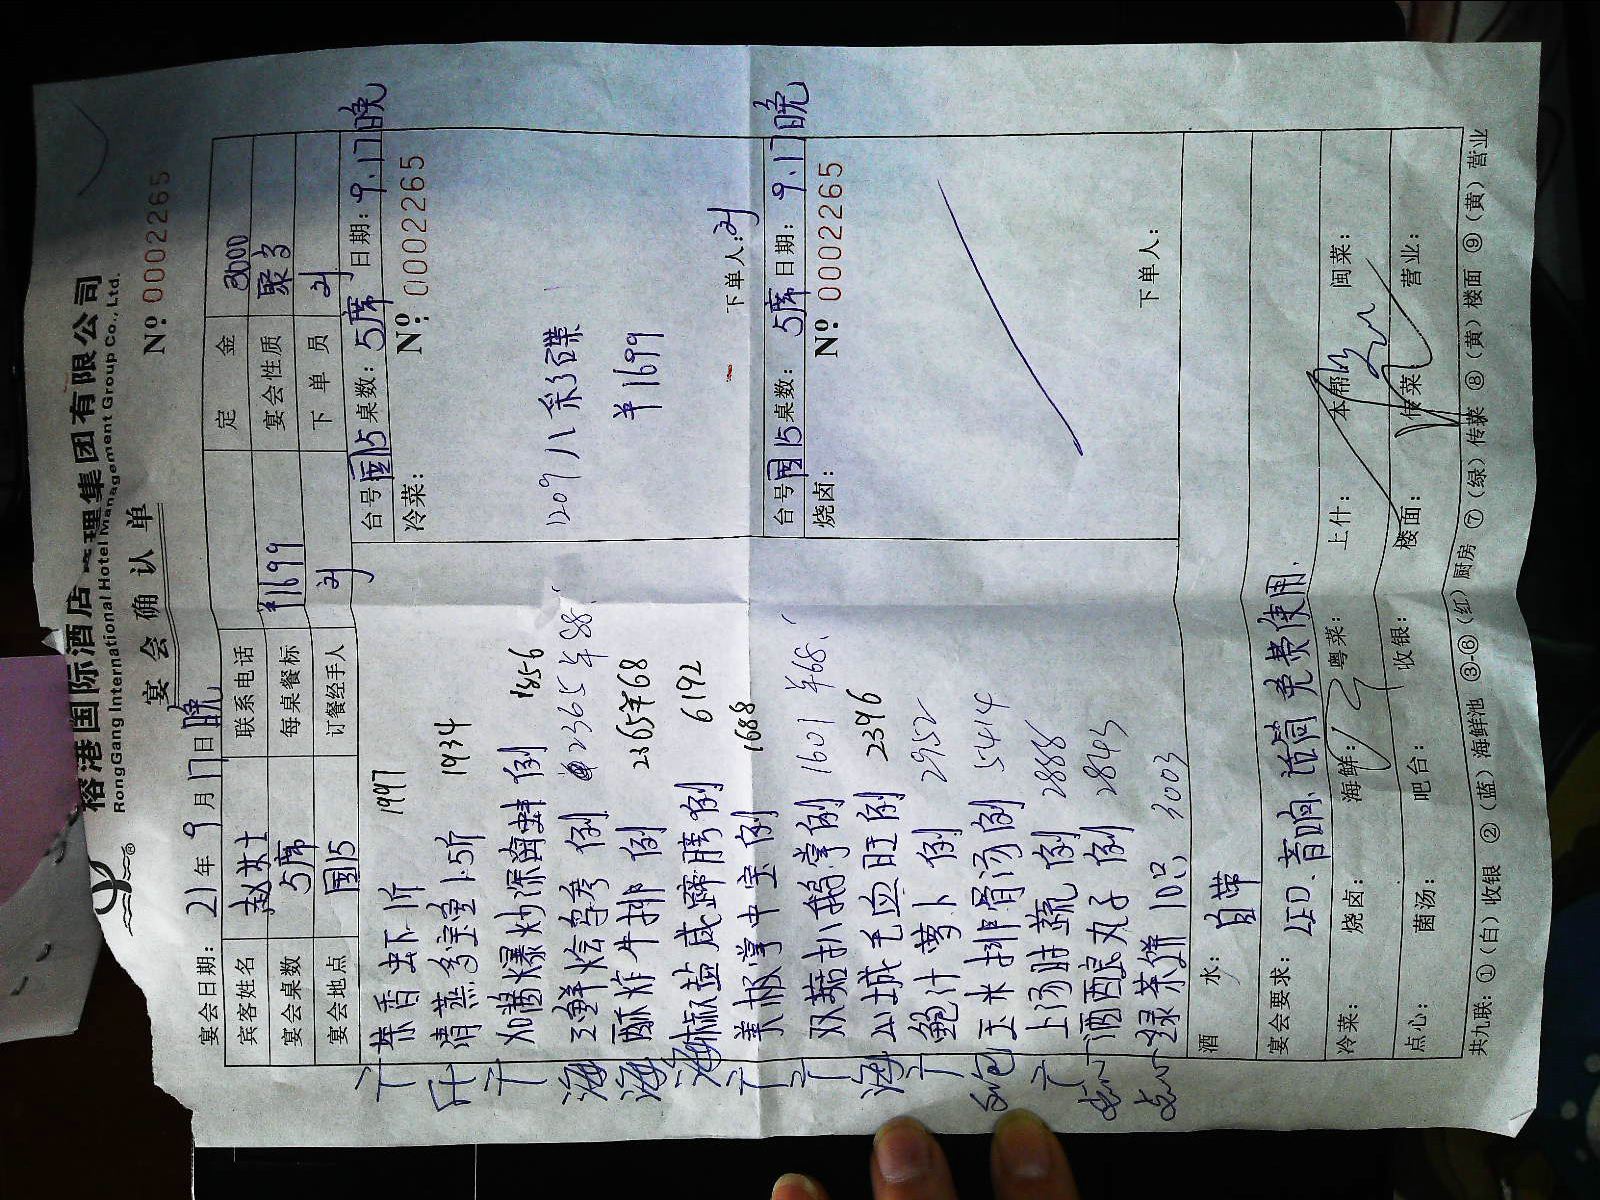 榕港国际酒店管理集团有限公司
RongGang International Hotel Management Group Co., Ltd.
宴会确认单
№ 0002265
宴会日期: 21年9月17日晚
宾客姓名 赵女士 联系电话 定金 3000
宴会桌数 5席 每桌餐标 ¥1699 宴会性质 聚会
宴会地点 国15 订餐经手人 下单员
辣香虾 1斤 1997
清蒸多宝鱼 1.5斤 1934
XO酱爆炒深海蚌 例 1856
三鲜烩鱼参 例 2365 ¥88
酥炸牛排 例 2365 ¥68
麻椒盐咸蹄膀 例 6192
美极掌中宝 例 1688
双菇扒鹅掌 例 1601 ¥68
山城毛血旺 例 2396
鲍汁萝卜 例 2952
玉米排骨汤 例 5414
上汤时蔬 例 2888
酒酿丸子 例 2843
绿茶饼 10只 3003
台号 国15 桌数: 5席 日期: 9.17晚
冷菜: № 0002265
1209 八彩碟
¥1699
下单人:
台号 国15 桌数: 5席 日期: 9.17晚
烧卤: № 0002265
下单人:
酒水: 自带
宴会要求: LED、音响、话筒免费使用.
冷菜: 烧卤: 海鲜: 粤菜: 上什: 本帮: 闽菜:
点心: 菌汤: 吧台: 收银: 楼面: 传菜: 营业:
共九联: ①(白)收银 ②(蓝)海鲜池 ③-⑥(红)厨房 ⑦(绿)传菜 ⑧(黄)楼面 ⑨(黄)营业